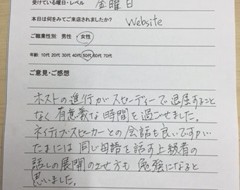 受けている曜日・レベル 金曜日
本日は何をみてご来店されましたか? Website
ご職業性別 男性 女性
年齢 10代 20代 30代 40代 50代 60代 70代
ご意見・ご感想
ホストの進行がスピーディーで退屈すること
なく有意義な時間を過ごせました。
ネイティブスピーカーとの会話も良いですが
たまには同じ母語を話す上級者の
話しの展開のさせ方も勉強になると
思いました。